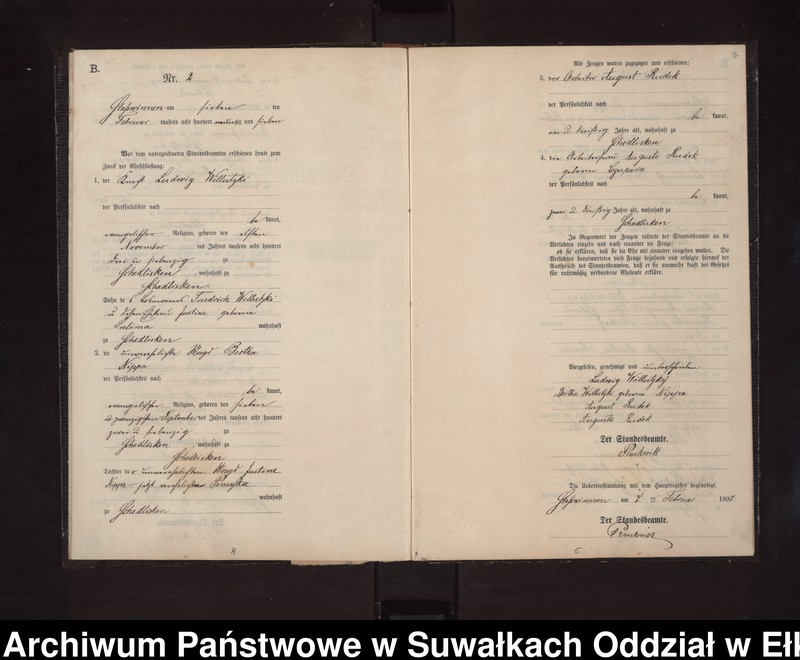 B.
Nr. 2
am sieben ten
Februar tausend acht hundert neunzig und sieben
Vor dem unterzeichneten Standesbeamten erschienen heute zum
Zweck der Eheschließung:
1. der Ludwig
der Persönlichkeit nach
be kannt,
evangelischer Religion, geboren den elften
November des Jahres tausend acht hundert
drei u. siebenzig zu
Schedlisken, wohnhaft zu
Schedlisken
Sohn des Friedrich
u. Justine geborene
wohnhaft
zu Schedlisken
2. die unverehelichte Magd Bertha
Nippa
der Persönlichkeit nach
be kannt,
evangelischer Religion, geboren den sieben
u. zwanzigsten September des Jahres tausend acht hundert
zwei u. siebenzig zu
Schedlisken, wohnhaft zu
Schedlisken
Tochter der unverehelichten Magd Justine
Nippa jetzt verehelichte
wohnhaft
zu Schedlisken
4
3
Als Zeugen waren zugezogen und erschienen:
3. der Arbeiter August Rudek
der Persönlichkeit nach
be kannt,
ein u. dreißig Jahre alt, wohnhaft zu
Schedlisken
4. die Arbeiterfrau Auguste Rudek
geborene
der Persönlichkeit nach
be kannt,
zwei u. dreißig Jahre alt, wohnhaft zu
Schedlisken
In Gegenwart der Zeugen richtete der Standesbeamte an die
Verlobten einzeln und nach einander die Frage:
ob sie erklären, daß sie die Ehe mit einander eingehen wollen. Die
Verlobten beantworteten diese Frage bejahend und erfolgte hierauf der
Ausspruch des Standesbeamten, daß er sie nunmehr kraft des Gesetzes
für rechtmäßig verbundene Eheleute erkläre.
Vorgelesen, genehmigt und unterschrieben
Ludwig
Bertha geborene Nippa
August Rudek
Auguste Rudek
Der Standesbeamte.
Die Uebereinstimmung mit dem Hauptregister beglaubigt.
am 7 ten Februar 1897
Der Standesbeamte.
5
Archiwum Państwowe w Suwałkach Oddział w Ełk